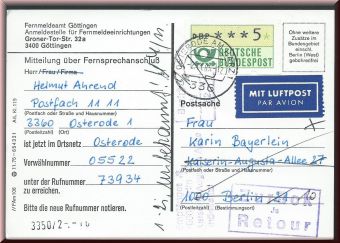 Fernmeldeamt Göttingen
Anmeldestelle für Fernmeldeeinrichtungen
Groner-Tor-Str. 32a
3400 Göttingen
Mitteilung über Fernsprechanschluß
Herr/Frau/Firma
Helmut Ahrend
Postfach 11 11
(Postfach oder Straße und Hausnummer)
3360 Osterode 1
(Postleitzahl) (Ort)
ist jetzt im Ortsnetz Osterode
Vorwählnummer 05522
unter der Rufnummer 73934
zu erreichen.
Bitte die neue Rufnummer notieren.
DBP ***5
DEUTSCHE
BUNDESPOST
Ohne weitere
Zusätze im
Bundesgebiet
einschl.
Berlin (West)
gebührenfrei
MIT LUFTPOST
PAR AVION
Postsache
Frau
Karin Bayerlein
Kaiserin-Augusta-Allee 27
(Postfach oder Straße und Hausnummer)
1000 Berlin
(Postleitzahl) (Bestimmungsort)
Retour